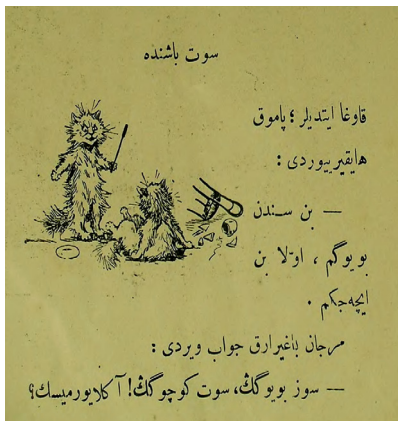 سوت باشنده
قاوغا ایتدیلر ؛ پاموق
هایقیرییوردی :
— بن سندن
بویوگم ، اوّلا بن
ایچه‌جکم .
مرجان باغیرارق جواب ویردی :
— سوز بویوگڭ، سوت کوچوگڭ! آ کلایورمیسك؟